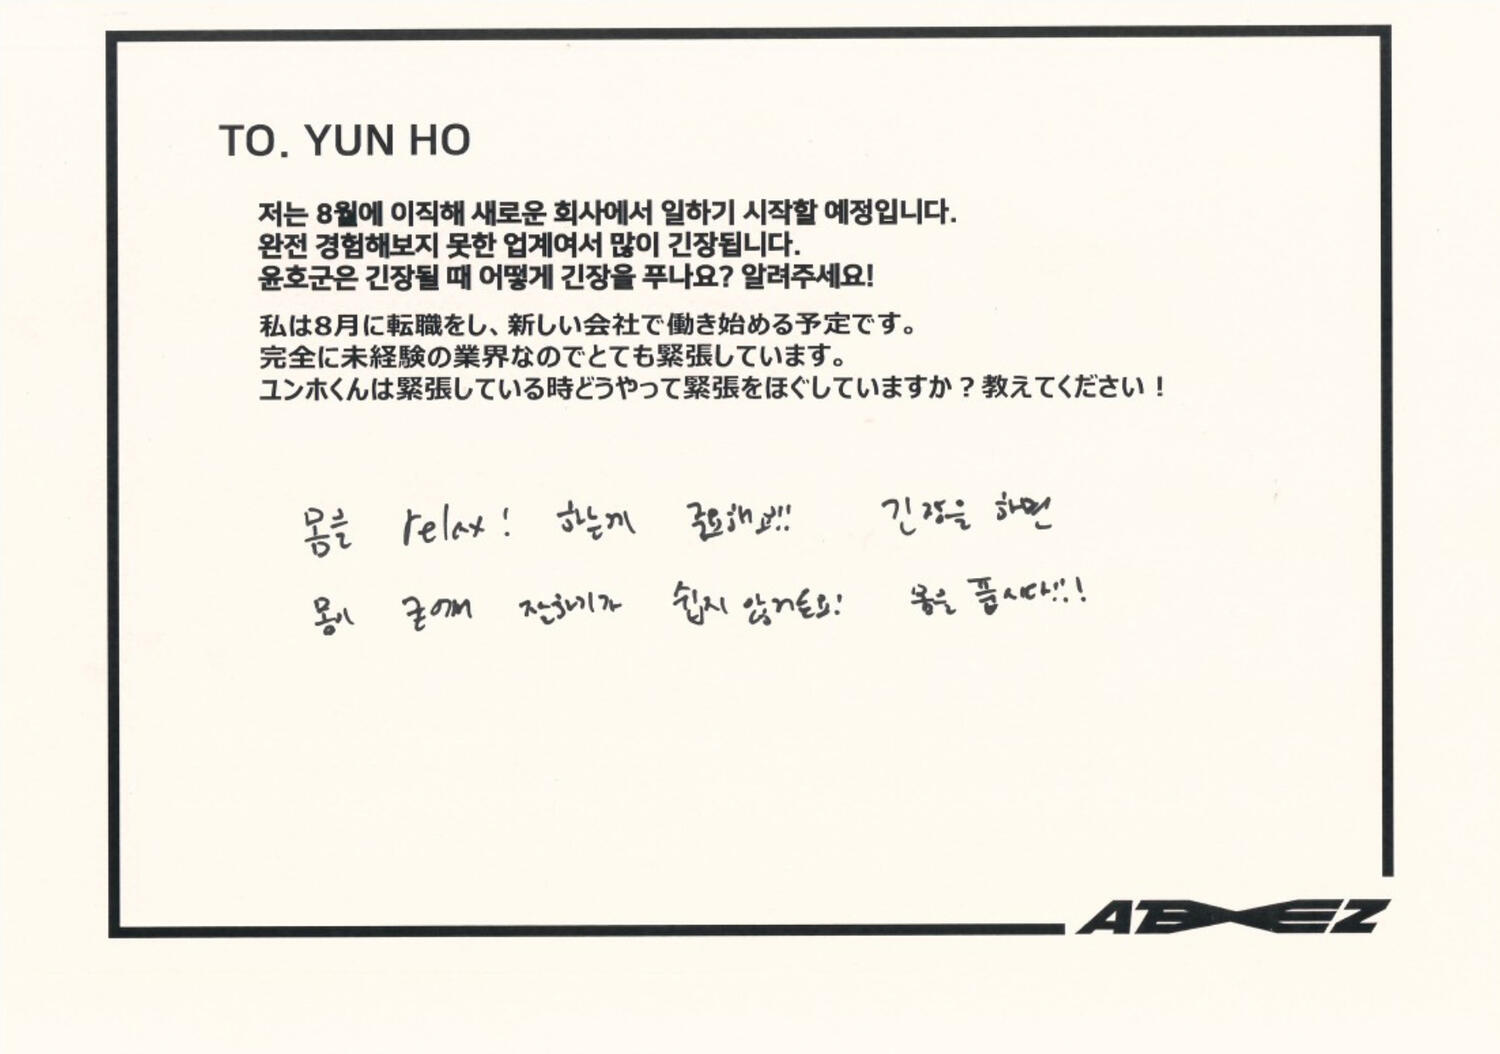 TO. YUN HO
저는 8월에 이직해 새로운 회사에서 일하기 시작할 예정입니다.
완전 경험해보지 못한 업계여서 많이 긴장됩니다.
윤호군은 긴장될 때 어떻게 긴장을 푸나요? 알려주세요!
私は8月に転職をし、新しい会社で働き始める予定です。
完全に未経験の業界なのでとても緊張しています。
ユンホくんは緊張している時どうやって緊張をほぐしていますか？教えてください！
몸을 relax! 하는게 중요해요!! 긴장을 하면
몸이 굳어 잘하기가 쉽지 않거든요! 몸을 풉시다!!!